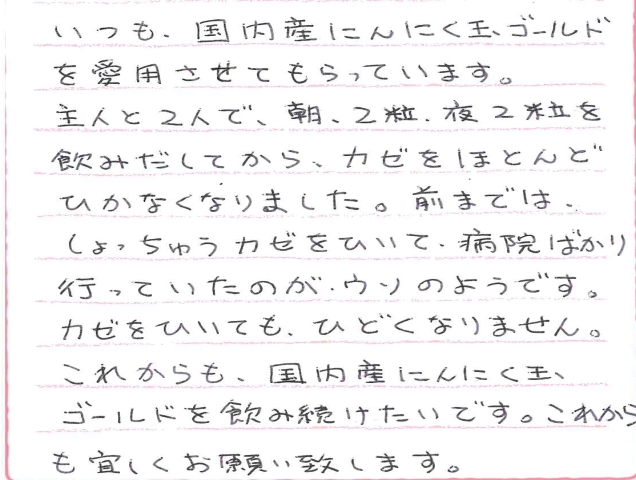 いつも、国内産にんにく玉、ゴールド
を愛用させてもらっています。
主人と2人で、朝、2粒、夜2粒を
飲みだしてから、カゼをほとんど
ひかなくなりました。前までは、
しょっちゅうカゼをひいて、病院ばかり
行っていたのが、ウソのようです。
カゼをひいても、ひどくなりません。
これからも、国内産にんにく玉、
ゴールドを飲み続けたいです。これから
も宜しくお願い致します。